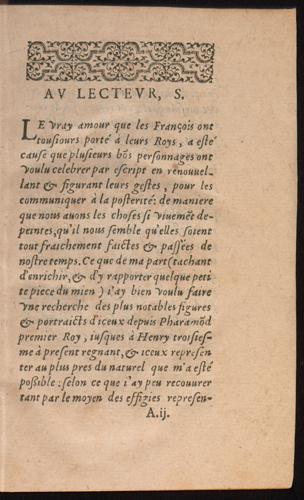 AV LECTEVR, S.
LE vray amour que les François ont
tousiours porté à leurs Roys, a esté
cause que plusieurs bõs personnages ont
voulu celebrer par escript en renouuel-
lant & figurant leurs gestes, pour les
communiquer à la posterité: de maniere
que nous auons les choses si viuemẽt de-
peintes, qu'il nous semble qu'elles soient
tout fraichement faictes & passées de
nostre temps. Ce que de ma part (tachant
d'enrichir, & d'y rapporter quelque peti
te piece du mien) i'ay bien voulu faire
vne recherche des plus notables figures
& portraicts d'iceux depuis Pharamõd
premier Roy, iusques à Henry troisies-
me à present regnant, & iceux represen
ter au plus pres du naturel que m'a esté
possible: selon ce que i'ay peu recouurer
tant par le moyen des effigies represen-
A.ij.